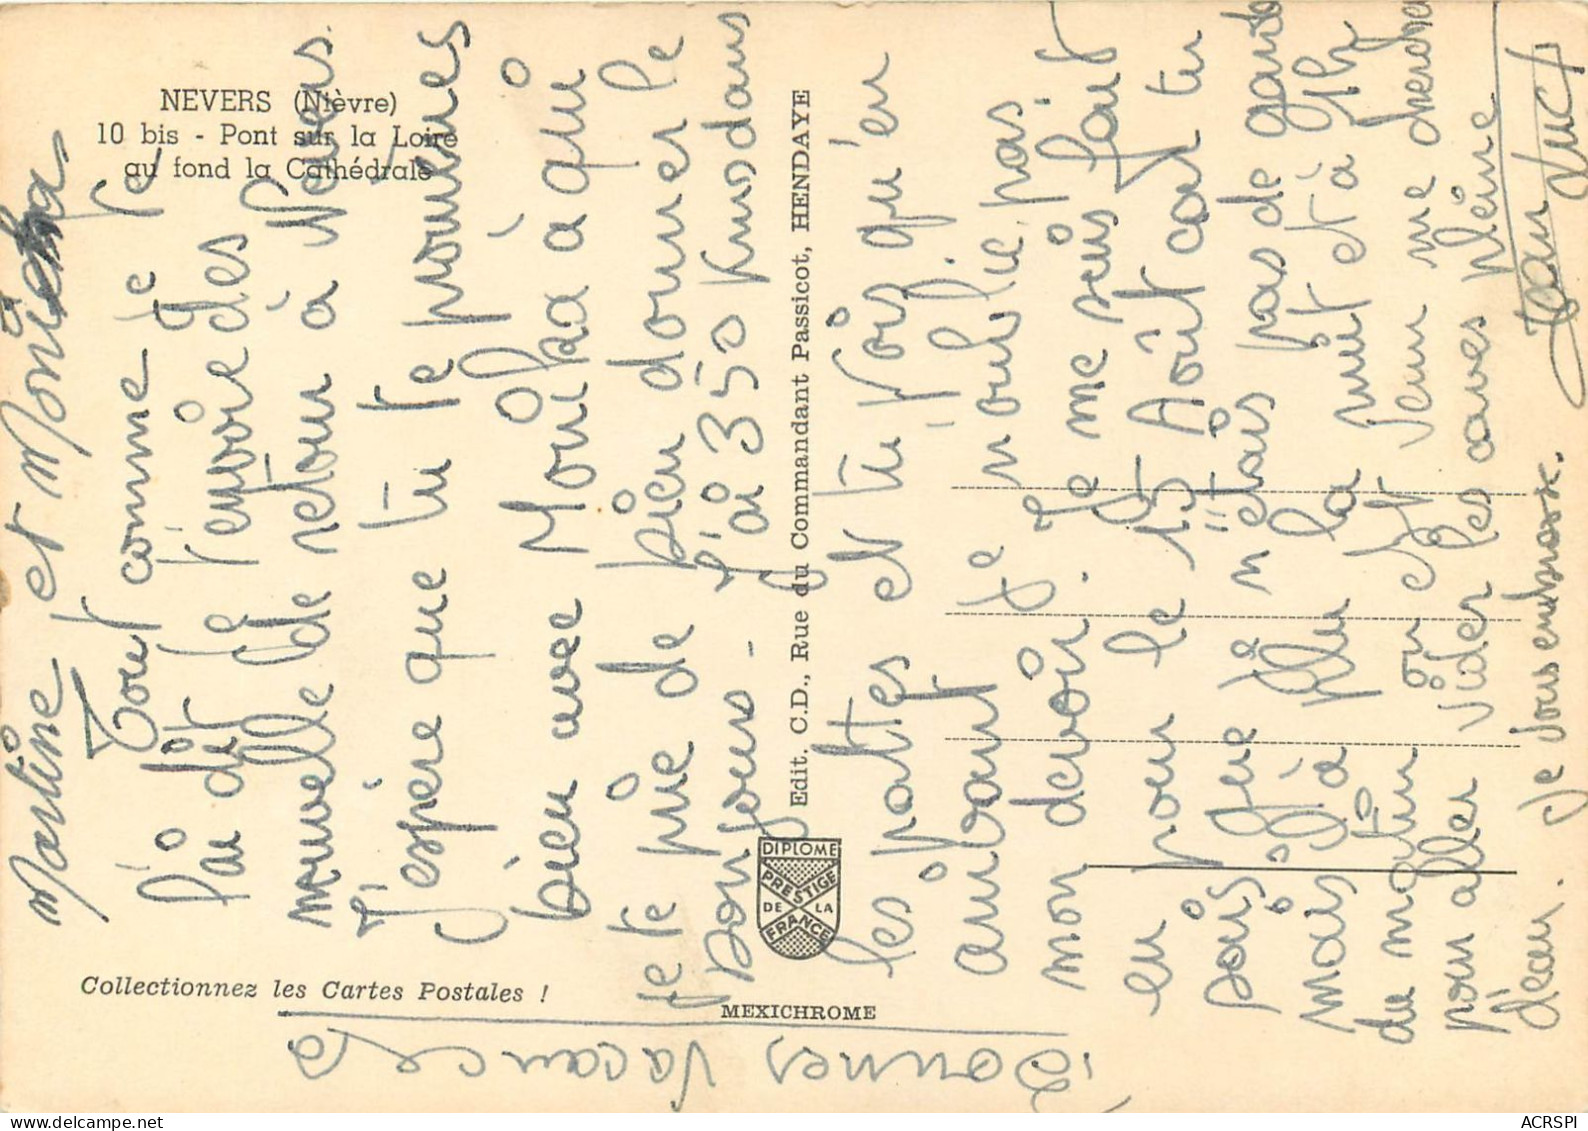 NEVERS (Nièvre)
10 bis - Pont sur la Loire
au fond la Cathédrale
Martine et Monika
Tout comme je te
l'ai dit je t'envoie des
nouvelle de retour à Nevers.
J'espère que tu te promènes
bien avec Monika à qui
je te prie de bien donner le
bonjour - J'ai 350 kms dans
les pattes et tu vois qu'en
arrivant je n'oublie pas
mon devoir. Je me suis fait
en pour le 15 Août car tu
sais que je n'étais pas de garde
mais j'a plu la nuit et à 9h
du matin on est venu me chercher
pour aller vider les caves pleine
d'eau. Je vous embrasse.
Jean Luc
Bonnes Vacances
Edit. C.D., Rue du Commandant Passicot, HENDAYE
DIPLOME
PRESTIGE
DE LA
FRANCE
Collectionnez les Cartes Postales !
MEXICHROME
delcampe.net
ACRSPI